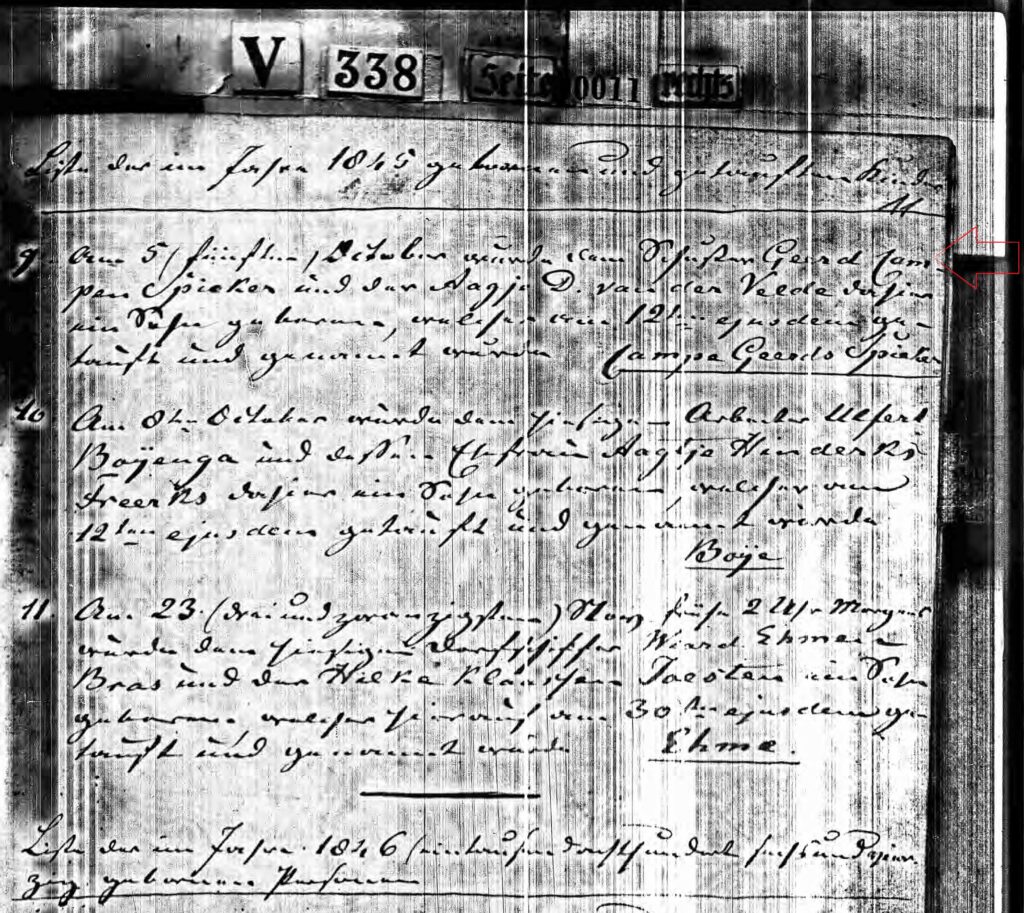 V 338 Seite 0011 rechts
Liste der im Jahre 1845 gebornen und getauften Kinder
11
9 Am 5 (fünften) October wurde dem Schuster Geerd Cam-
pen Spieker und der Aagje D. van der Velde dahier
ein Sohn geboren, welcher am 12ten ejusdem ge-
tauft und genannt wurde Campe Geerds Spieker
10 Am 8ten October wurde dem hiesigen Arbeiter Ulfert
Boijenga und dessen Ehefrau Aagtje Hinderks
Freerks dahier ein Sohn geboren, welcher am
12ten ejusdem getauft und genannt wurde
Boije
11 Am 23. (dreiundzwanzigsten) Nov. früh 2 Uhr Morgens
wurde dem hiesigen Dorfschiffer Wierd Ehmen
Bras und der Hilke Klaasen Joesten ein Sohn
geboren welcher hierauf am 30ten ejusdem ge-
tauft und genannt wurde Ehme.
Liste der im Jahre 1846 (eintausendachthundert sechsundvier-
zig gebornen Personen